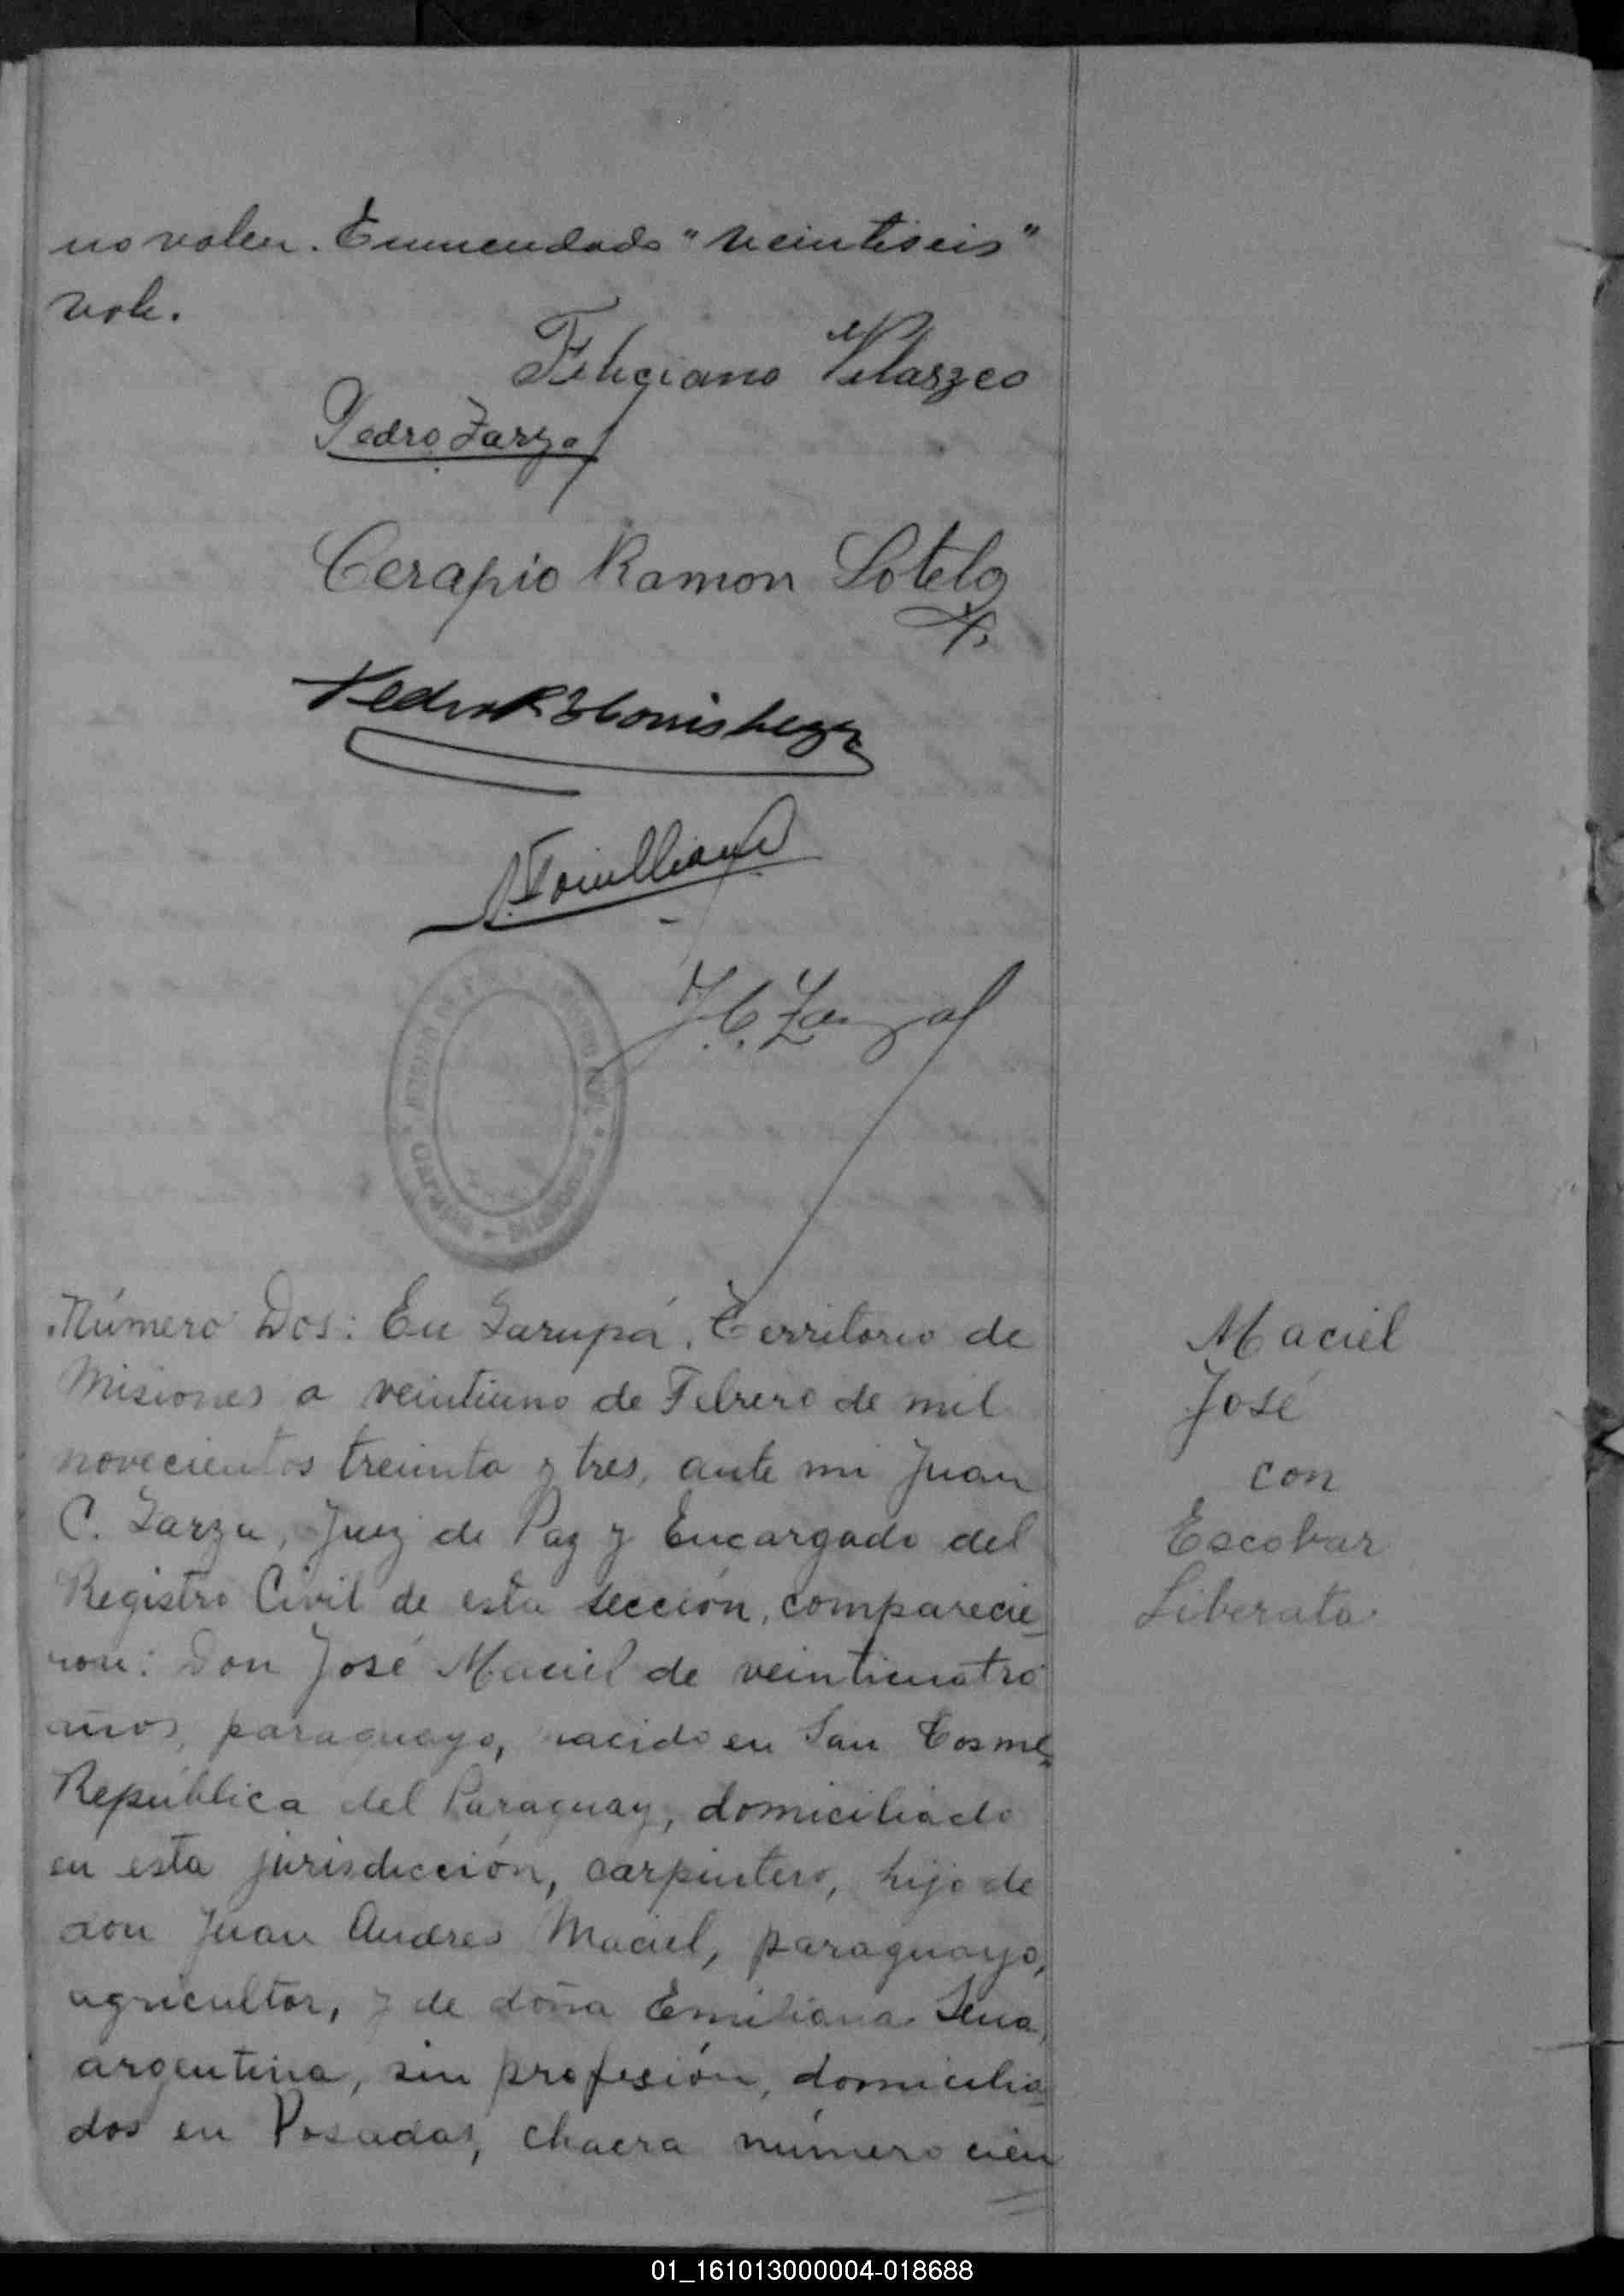 no valen. Enmendado "veintiseis"
vale.
Feliciano Velaszco
Pedro Zarza
Cerapio Ramon Sotelo
Pedro R
J. C. Zarza
Garupá - Misiones
Número Dos: En Garupá, Territorio de
Misiones a veintiuno de Febrero de mil
novecientos treinta y tres, ante mi Juan
C. Zarza, Juez de Paz y Encargado del
Registro Civil de esta sección, comparecie
ron: Don José Maciel de veinticuatro
años, paraguayo, nacido en San Cosme,
República del Paraguay, domiciliado
en esta jurisdicción, carpintero, hijo de
don Juan Andres Maciel, paraguayo,
agricultor, y de doña Emiliana
argentina, sin profesión, domicilia
dos en Posadas, chacra número cien
Maciel
José
con
Escobar
Liberata
01_161013000004-018688